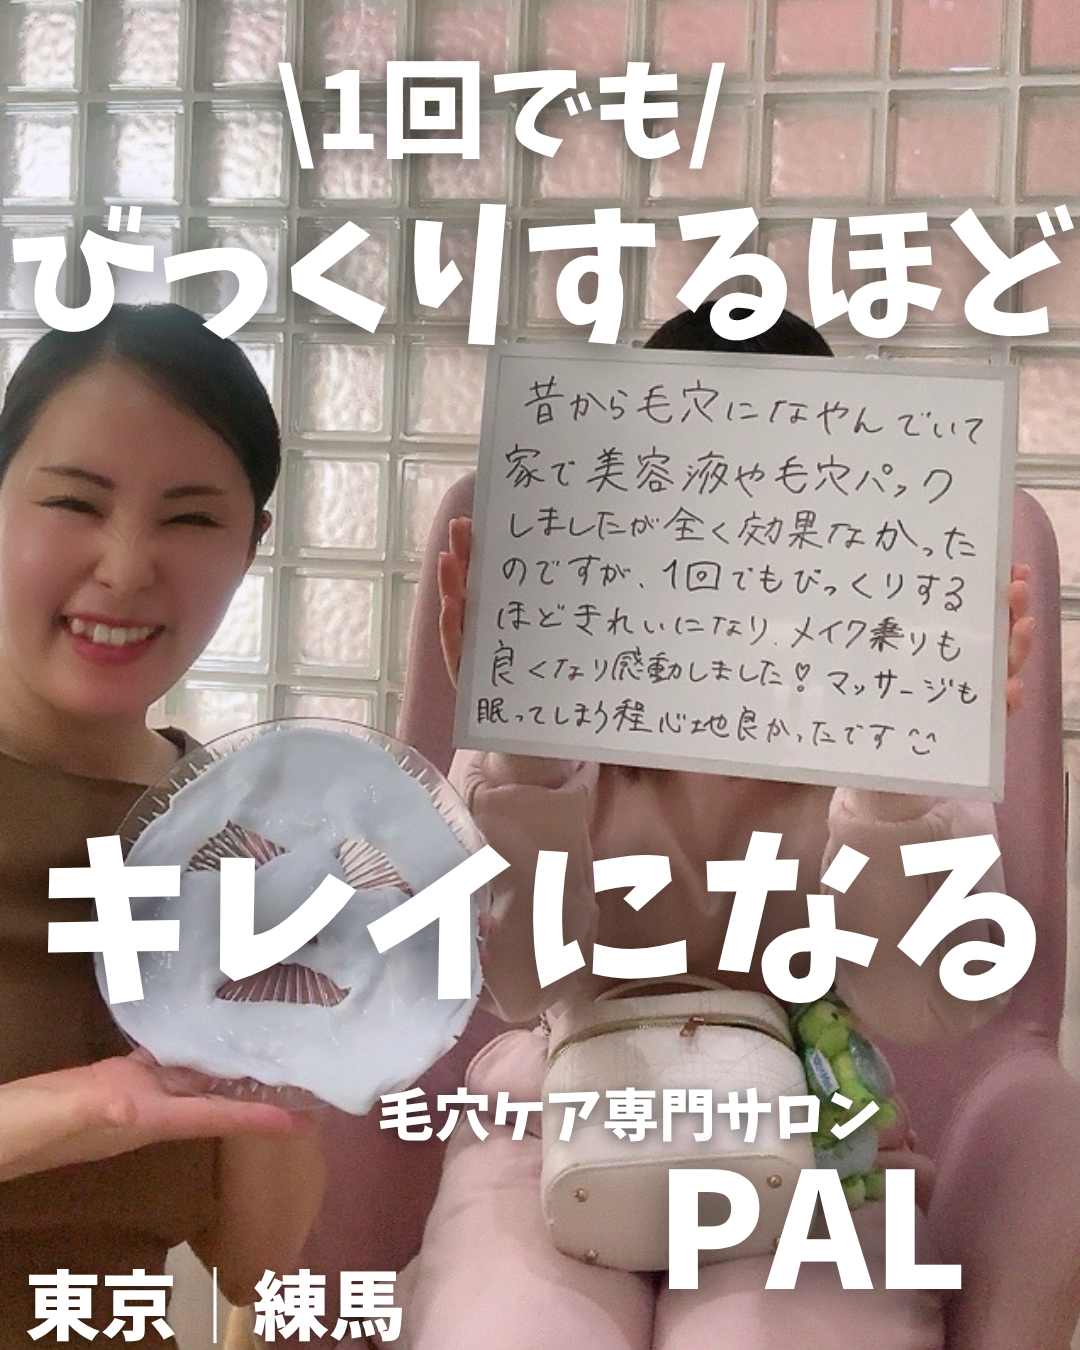 \1回でも/
びっくりするほど
昔から毛穴になやんでいて
家で美容液や毛穴パック
しましたが全く効果なかった
のですが、1回でもびっくりする
ほどきれいになり、メイク乗りも
良くなり感動しました! マッサージも
眠ってしまう程心地良かったです
キレイになる
毛穴ケア専門サロン
PAL
東京｜練馬